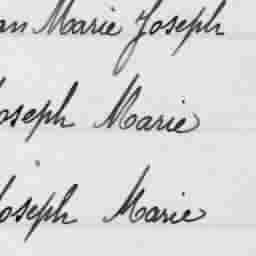 an Marie Joseph
Joseph Marie
Joseph Marie